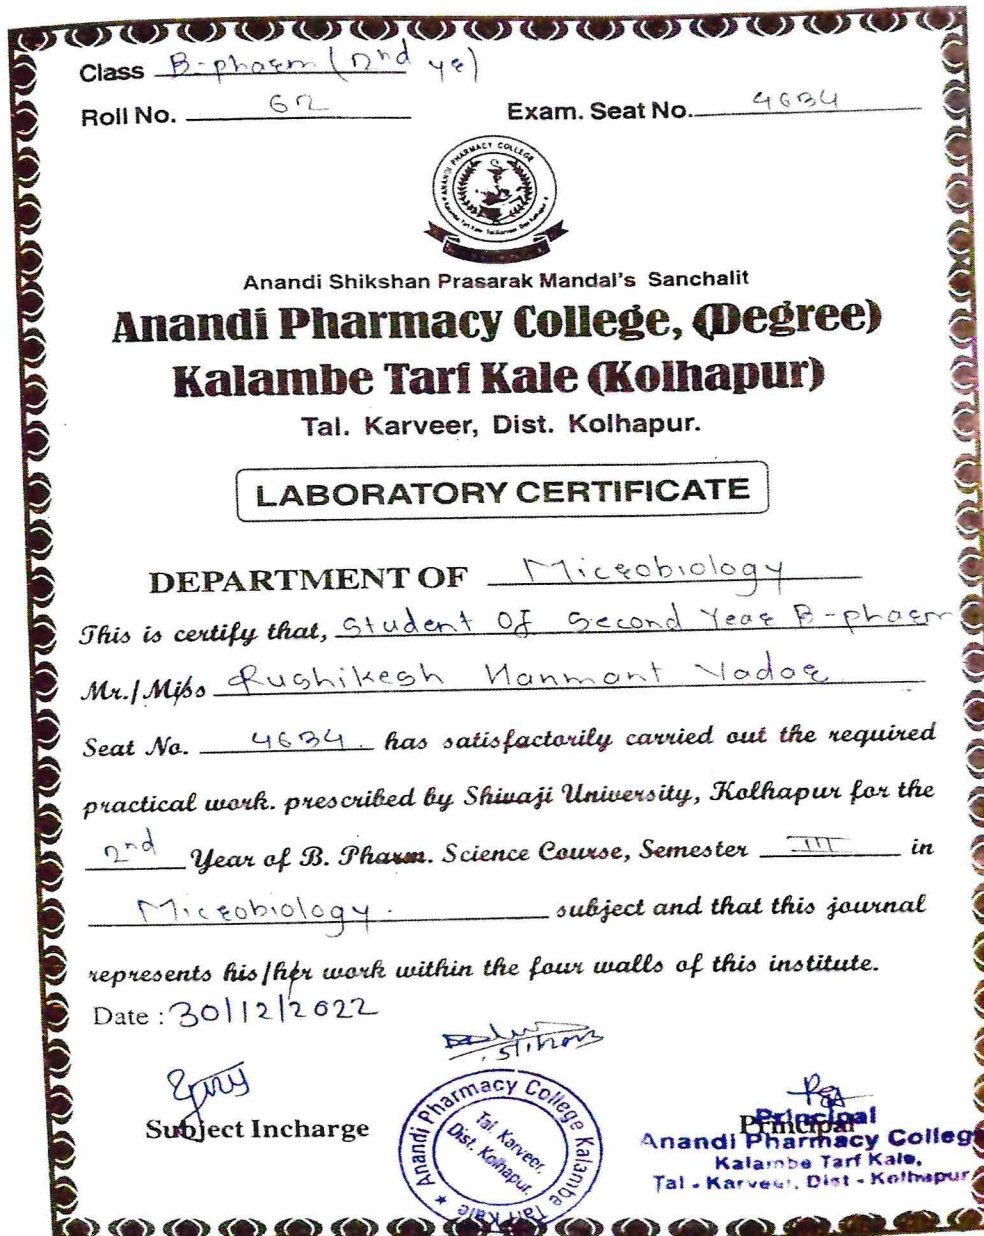 Class B-pharm (2nd yr)
Roll No. 62 Exam. Seat No. 4634
ANANDI PHARMACY COLLEGE
Anandi Shikshan Prasarak Mandal's Sanchalit
Anandi Pharmacy College, (Degree)
Kalambe Tarf Kale (Kolhapur)
Tal. Karveer, Dist. Kolhapur.
LABORATORY CERTIFICATE
DEPARTMENT OF Microbiology
This is certify that, Student Of Second Year B-pharm
Mr./Miss Rushikesh Hanmant Yadav
Seat No. 4634. has satisfactorily carried out the required
practical work. prescribed by Shivaji University, Kolhapur for the
2nd Year of B. Pharm. Science Course, Semester III in
Microbiology. subject and that this journal
represents his/her work within the four walls of this institute.
Date : 30/12/2022
Subject Incharge
Anandi Pharmacy College Kalambe Tarf Kale
Tal. Karveer,
Dist. Kolhapur.
Principal
Principal
Anandi Pharmacy Colleg
Kalambe Tarf Kale,
Tal - Karveer, Dist - Kolhapur